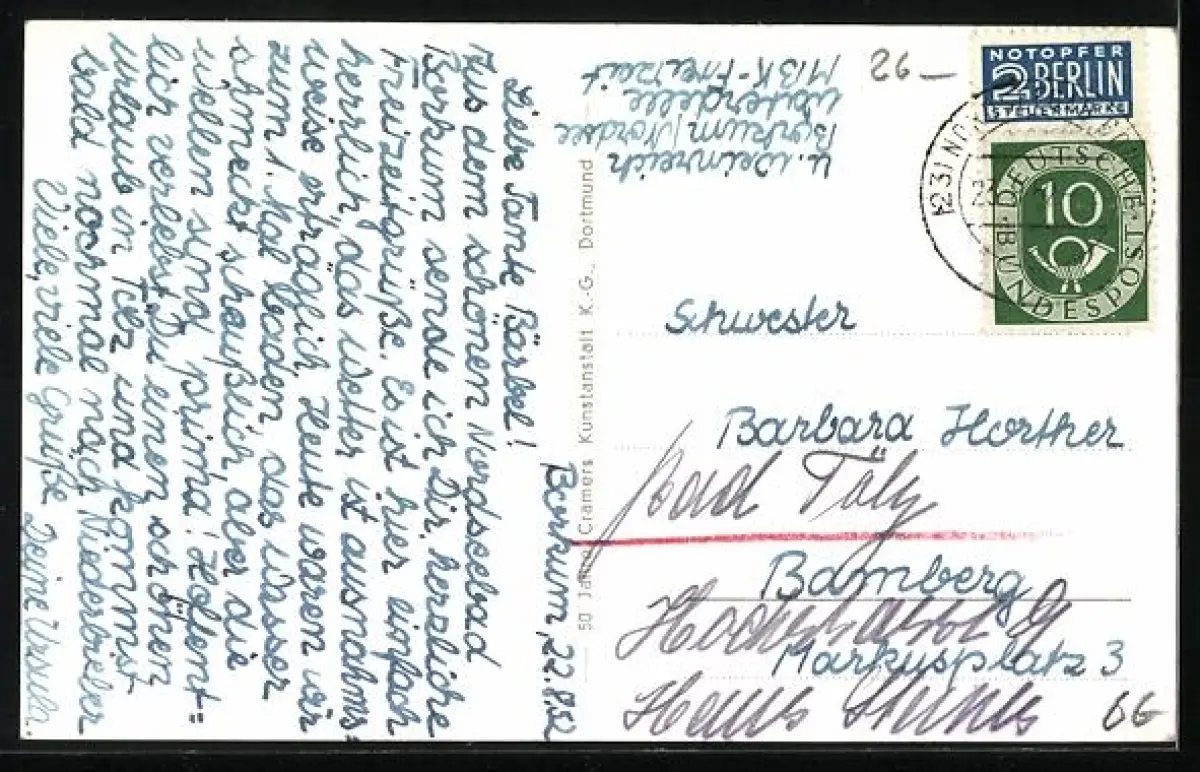 Borkum, 22.8.52
Liebe Tante Bärbel!
Aus dem schönen Nordseebad
Borkum sende ich Dir herzliche
Freizeitgrüße. Es ist hier einfach
herrlich, das Wetter ist ausnahms-
weise erträglich. Heute waren wir
zum 1. Mal baden, das Wasser
schmeckt scheußlich, aber die
Wellen sind prima! Hoffent=
lich verlebst Du einen schönen
Urlaub in Tölz und kommst
bald nochmal nach Niederbieber
Viele, viele Grüße Deine Ursula.
U. Weinreich
Borkum/Nordsee
Waterdelle
MBK-Freizeit
50 Jahre Cramers Kunstanstalt K.-G., Dortmund
26 —
NOTOPFER
2 BERLIN
STEUERMARKE
DEUTSCHE BUNDESPOST
10
(23)
Schwester
Barbara Horther
Bad Tölz
Bamberg
Markusplatz 3
Haus
66